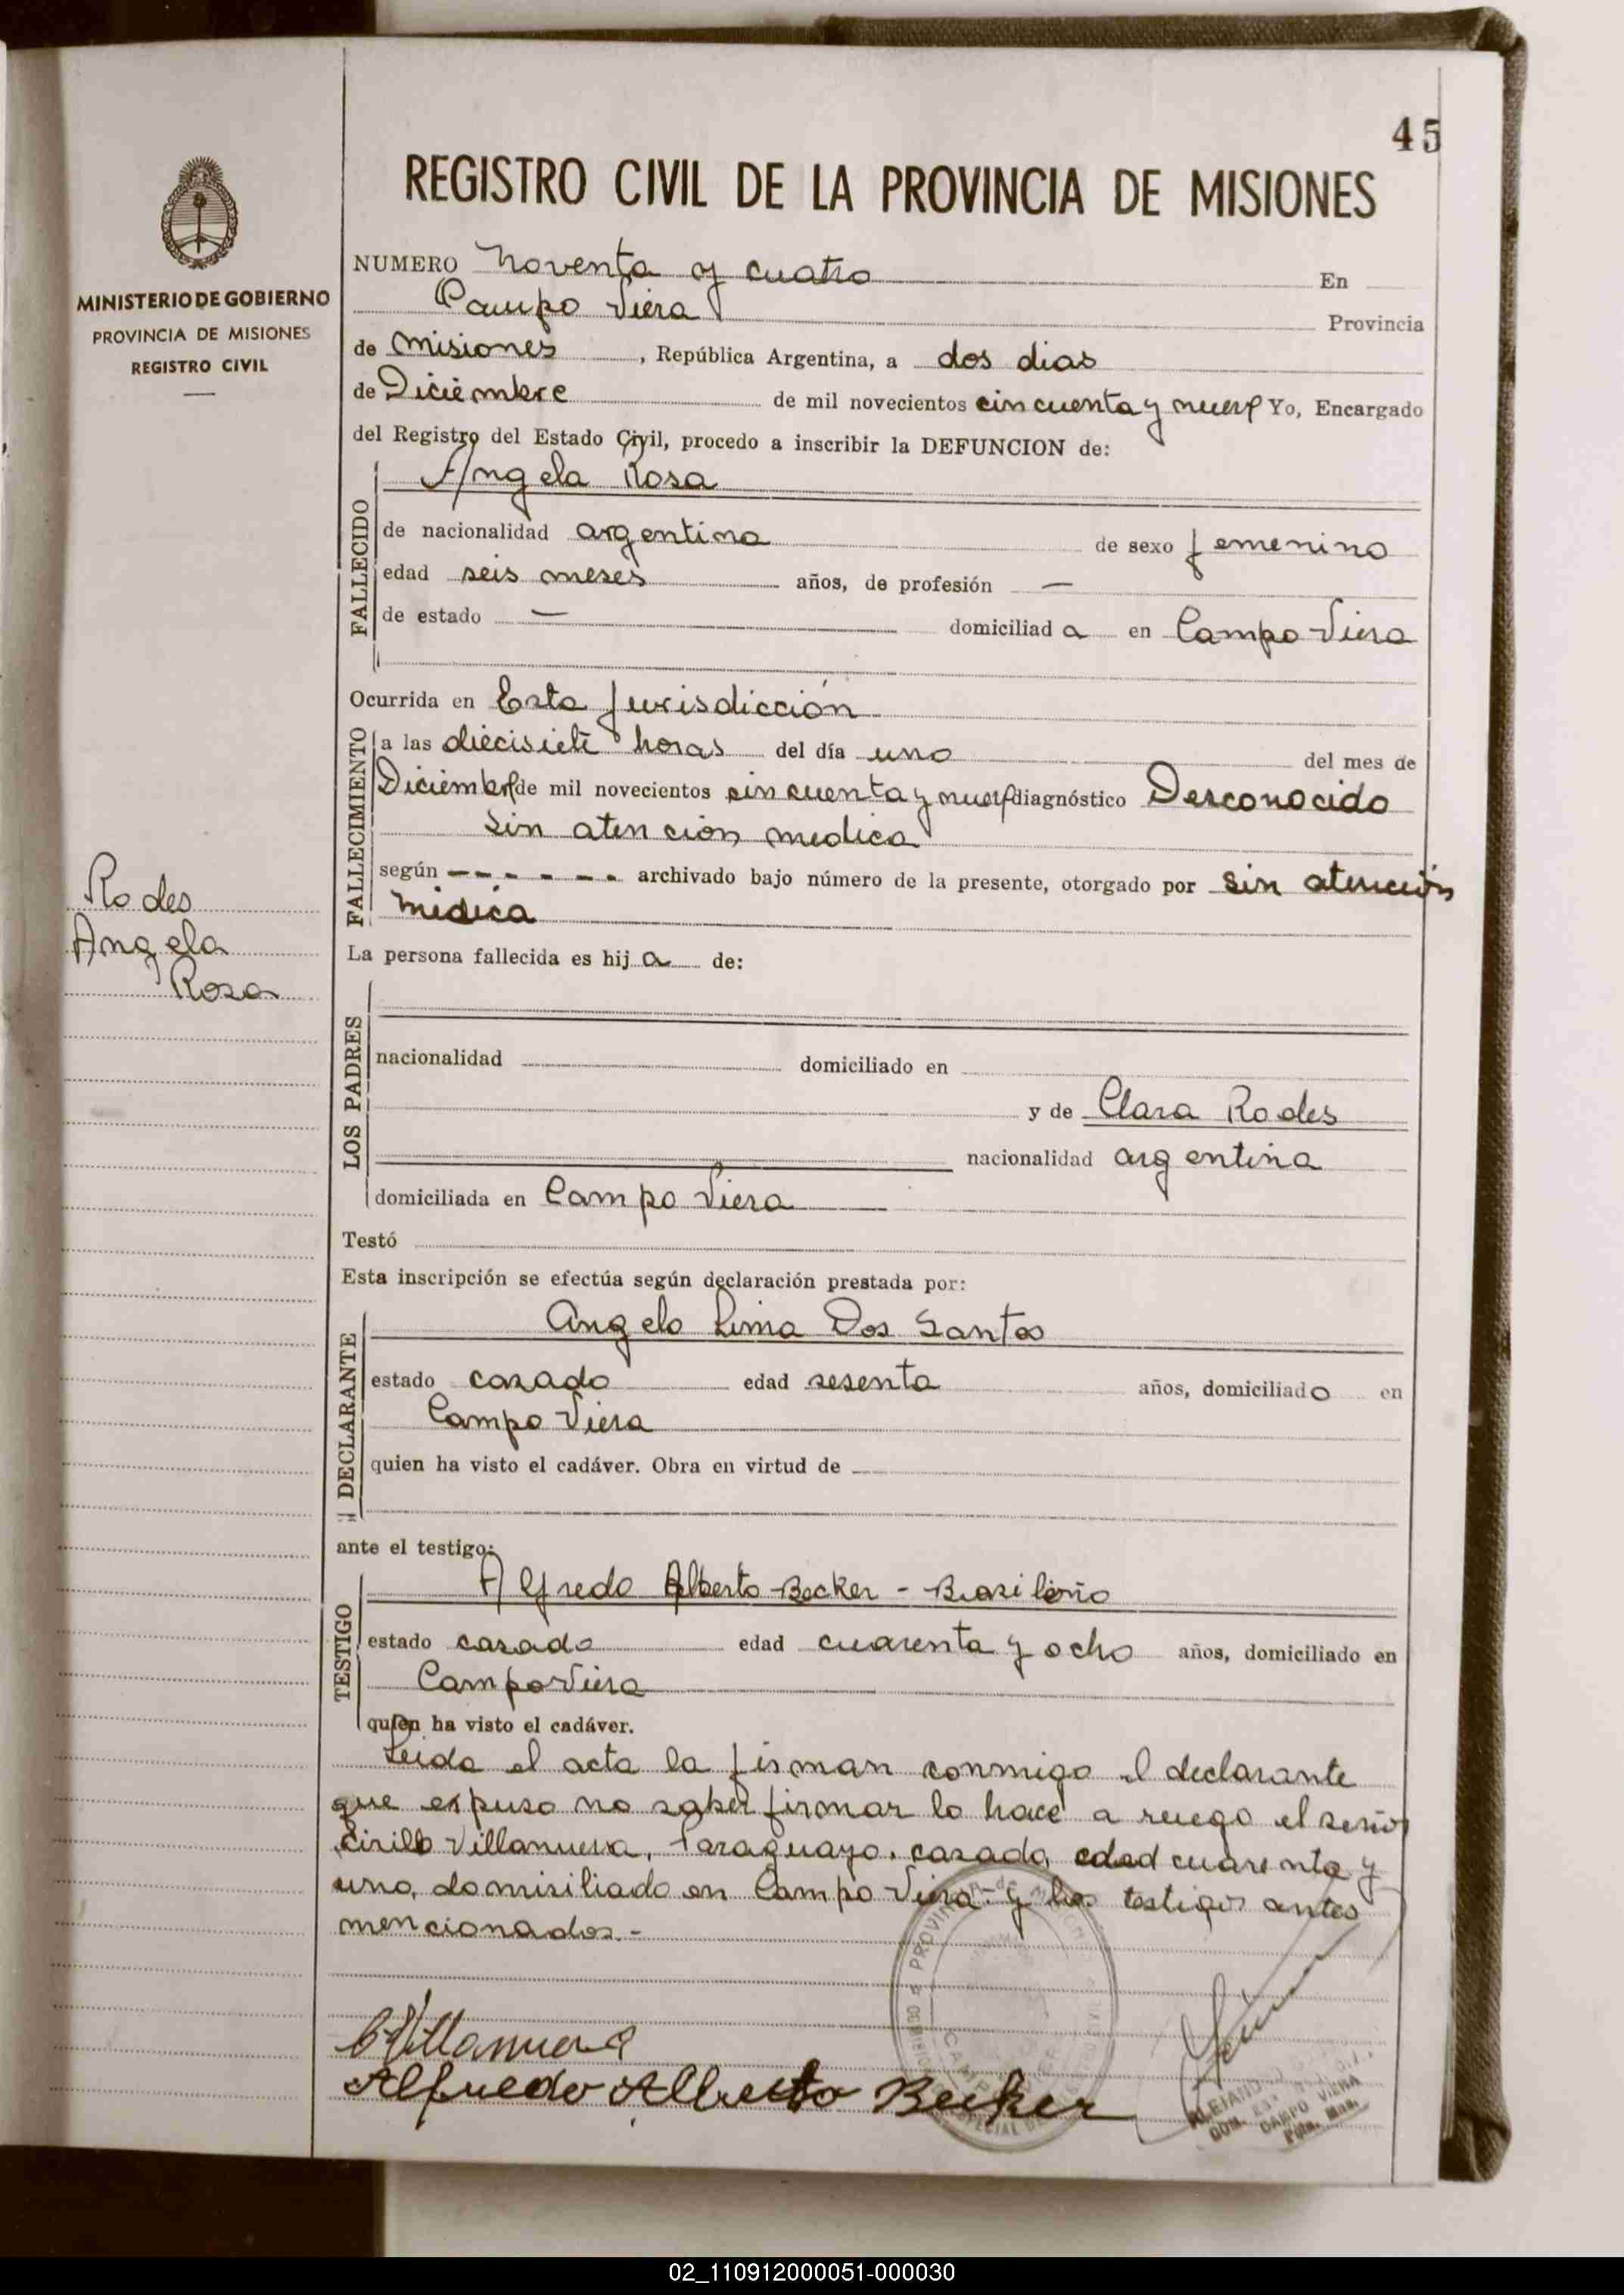 45
REGISTRO CIVIL DE LA PROVINCIA DE MISIONES
MINISTERIO DE GOBIERNO
PROVINCIA DE MISIONES
REGISTRO CIVIL
NUMERO Noventa y cuatro En
Campo Viera Provincia
de Misiones, República Argentina, a dos dias
de Diciembre de mil novecientos cincuenta y nueve Yo, Encargado
del Registro del Estado Civil, procedo a inscribir la DEFUNCION de:
Angela Rosa
FALLECIDO
de nacionalidad argentina de sexo femenino
edad seis meses años, de profesión —
de estado — domiciliad a en Campo Viera
Ocurrida en Esta Jurisdicción
FALLECIMIENTO
a las diecisiete horas del día uno del mes de
Diciembre de mil novecientos cincuenta y nueve diagnóstico Desconocido
Sin atencion medica
según - - - - - - archivado bajo número de la presente, otorgado por Sin atencion
médica
Rodes
Angela
Rosa
La persona fallecida es hij a de:
LOS PADRES
nacionalidad domiciliado en
y de Clara Rodes
nacionalidad argentina
domiciliada en Campo Viera
Testó
Esta inscripción se efectúa según declaración prestada por:
Angelo Lima Dos Santos
DECLARANTE
estado casado edad sesenta años, domiciliado en
Campo Viera
quien ha visto el cadáver. Obra en virtud de
ante el testigo:
Alfredo Alberto Becker - Brasileño
TESTIGO
estado casado edad cuarenta y ocho años, domiciliado en
Campo Viera
quien ha visto el cadáver.
Leida el acta la firman conmigo el declarante
que expuso no saber firmar lo hace a ruego el señor
Cirilo Villanueva, Paraguayo, casado, edad cuarenta y
uno, domisiliado en Campo Viera - y los testigos antes
mencionados.-
C Villanueva
Alfredo Alberto Becker
CAMPO VIERA
02_110912000051-000030